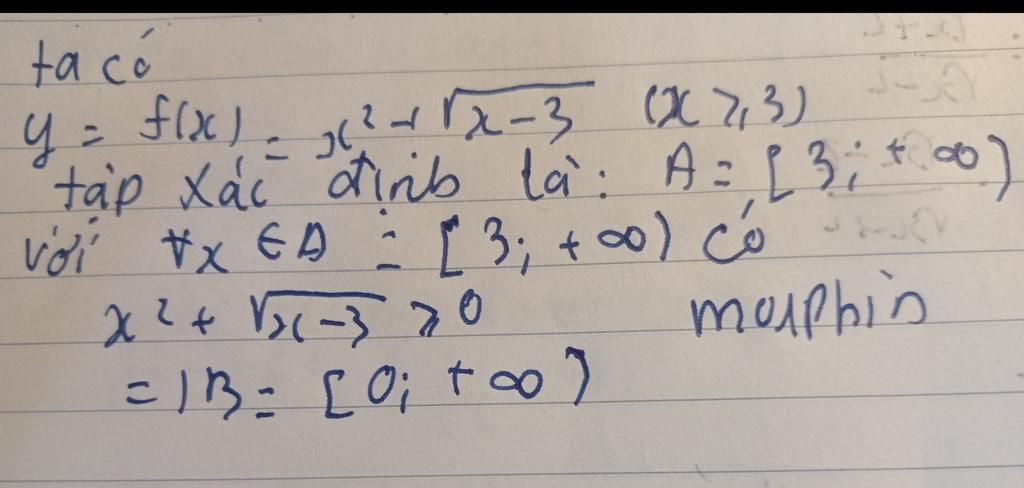 ta có
y = f(x) = x² + √x-3 (x ⩾ 3)
tập xác định là: A = [3; +∞)
với ∀x ∈ A = [3; +∞) có
x² + √x-3 ⩾ 0 morphin
=) B = [0; +∞)